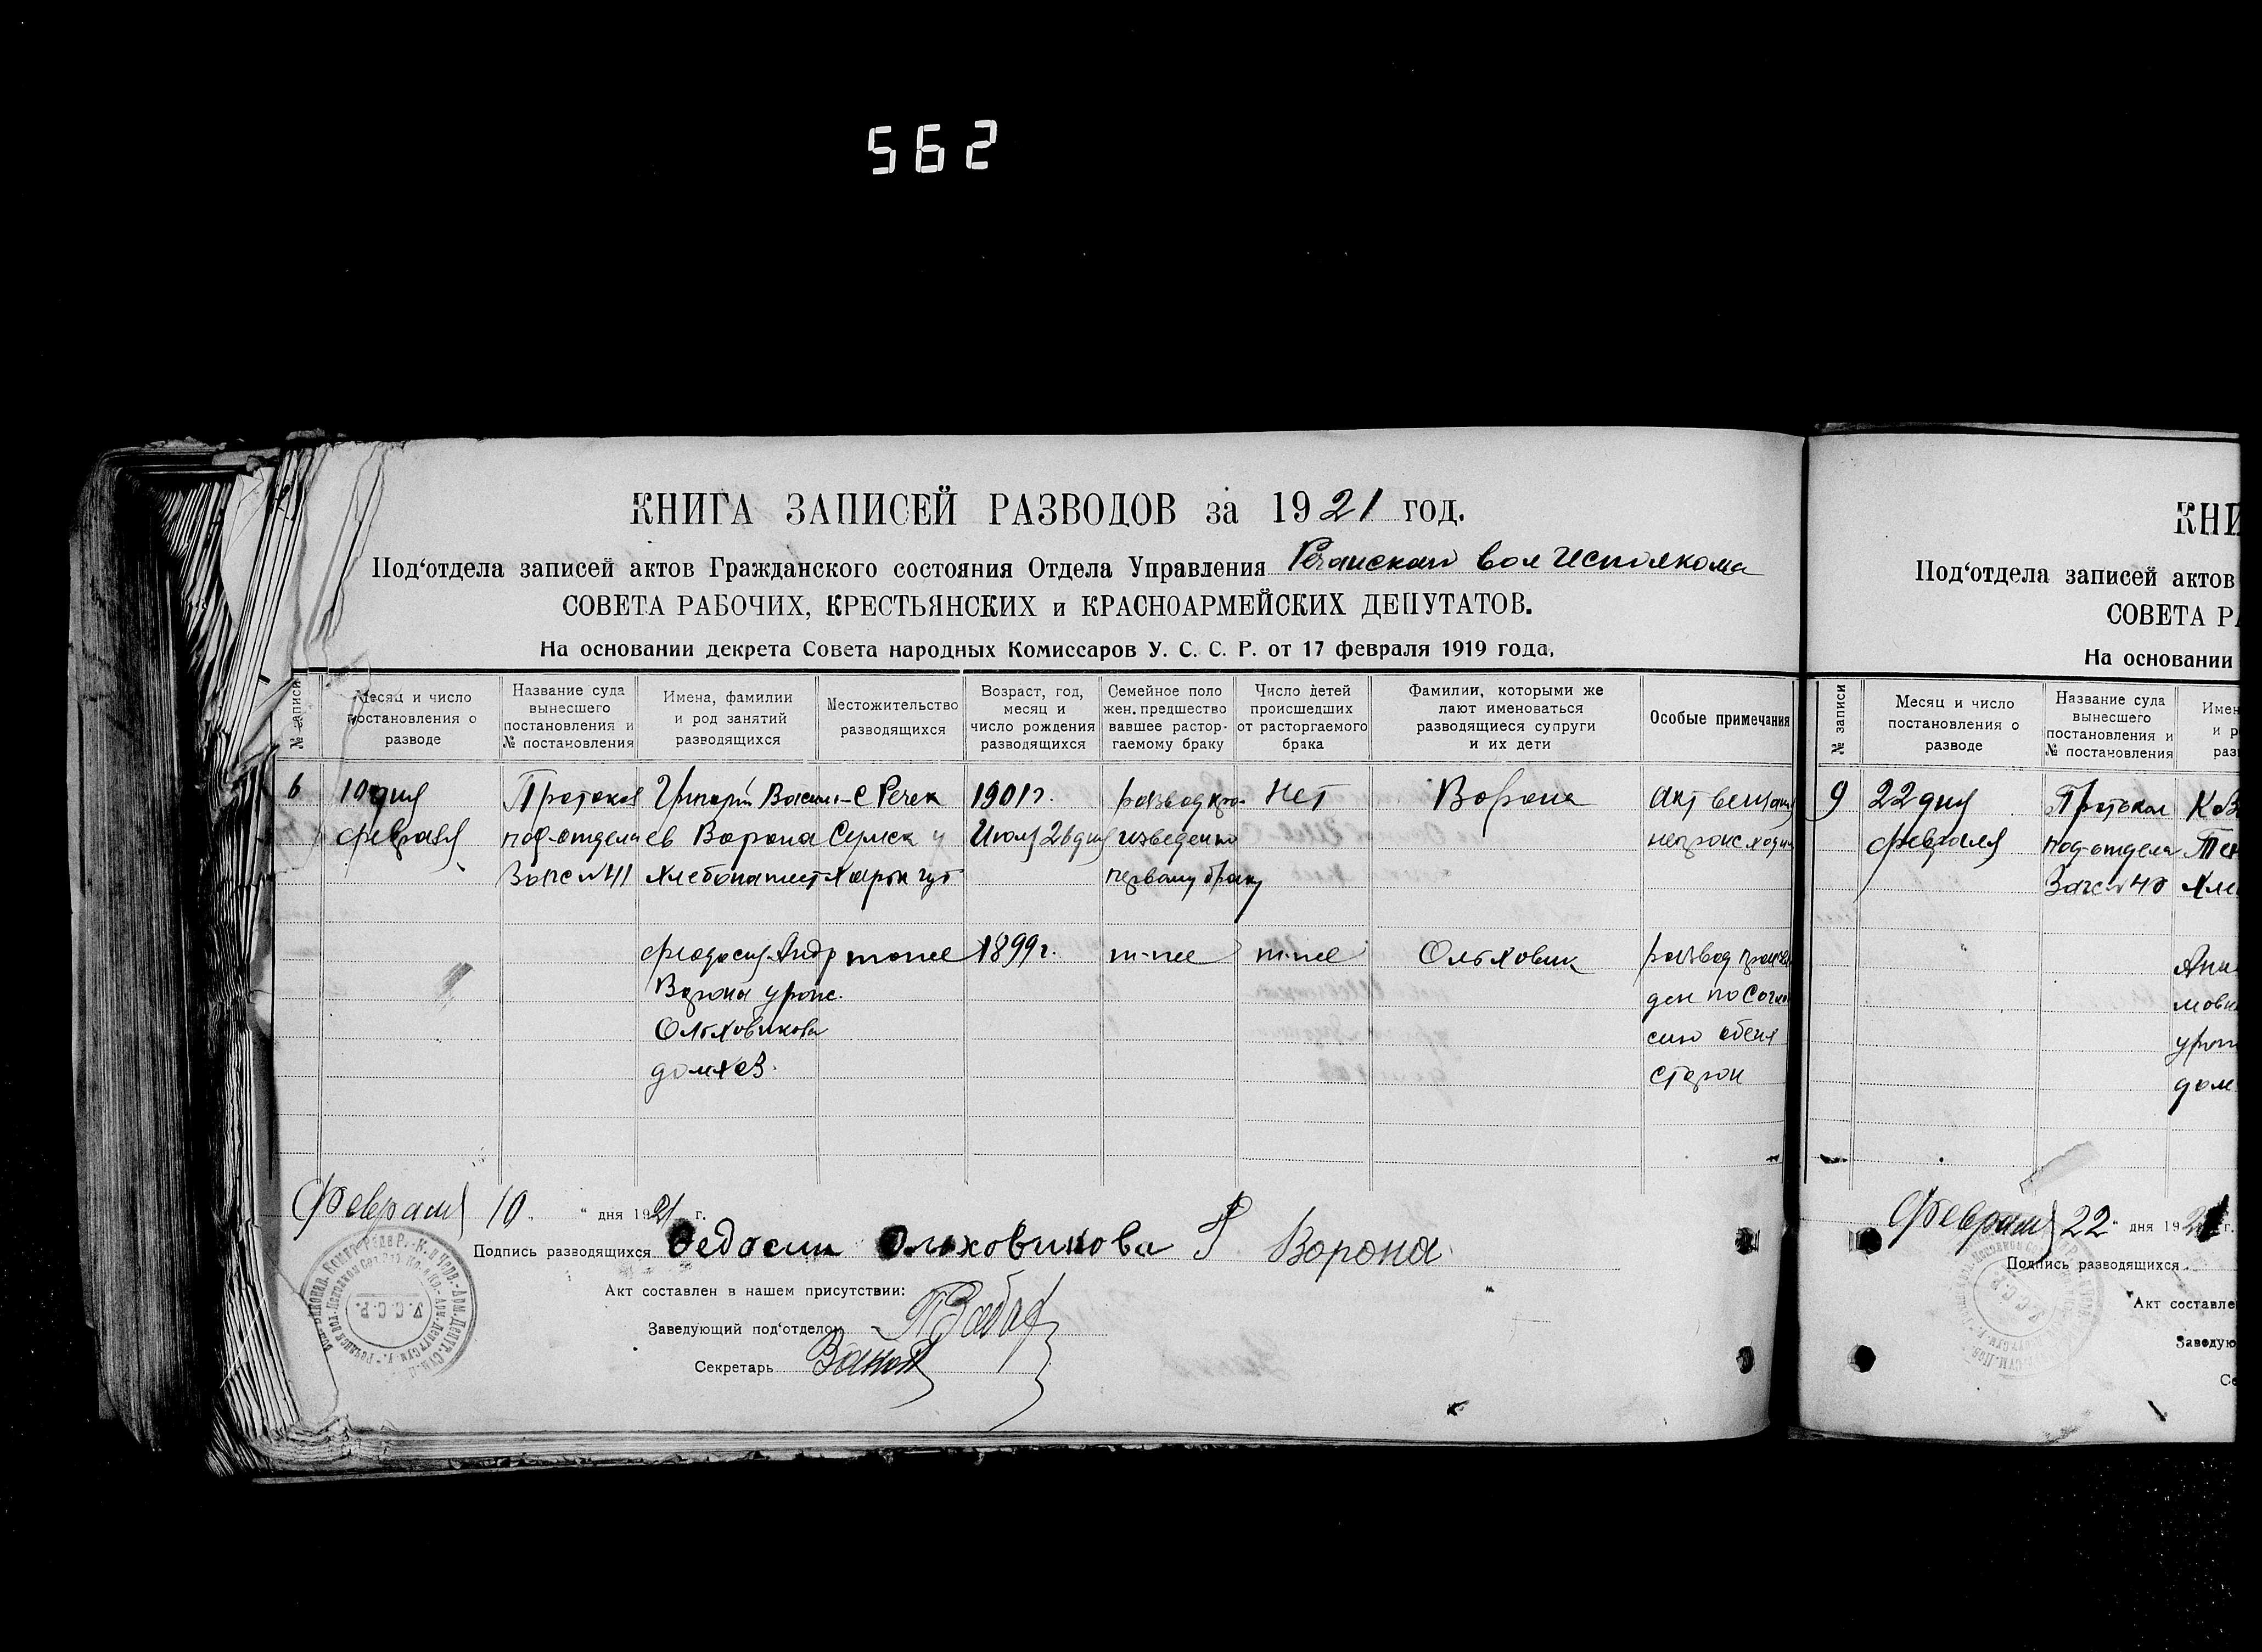 562
КНИГА ЗАПИСЕЙ РАЗВОДОВ за 1921 год.
Под‘отдела записей актов Гражданского состояния Отдела Управления Речанского вол Исполкома
СОВЕТА РАБОЧИХ, КРЕСТЬЯНСКИХ и КРАСНОАРМЕЙСКИХ ДЕПУТАТОВ.
На основании декрета Совета народных Комиссаров У. С. С. Р. от 17 февраля 1919 года,
№ записи
Месяц и число
постановления о
разводе
Название суда
вынесшего
постановления и
№ постановления
Имена, фамилии
и род занятий
разводящихся
Местожительство
разводящихся
Возраст, год,
месяц и
число рождения
разводящихся
Семейное поло
жен. предшество
вавшее растор-
гаемому браку
Число детей
происшедших
от расторгаемого
брака
Фамилии, которыми же
лают именоваться
разводящиеся супруги
и их дети
Особые примечания
6
10 дня
февраля
Протокол
под-отдела
Загс №41
Григорий Васили-
ев Ворона
Хлебопашест
С Речек
Сумск у
Харьк губ
1901 г.
Июля 26 дня
развод про-
изведен по
первому браку
Нет
Ворона
Акт венчания
непроисходил
Феодосия Андр
Ворона урож.
Ольховикова
домхоз.
тоже
1899 г.
т-же
т-же
Ольховик
развод произве
ден по Согла
сию обеих
сторон
Февраля 10 " дня 1921 г.
Подпись разводящихся Федосии Ольховикова Г Ворона
Акт составлен в нашем присутствии:
Заведующий под‘отделом
Секретарь
У.С.С.Р.
КНИ
Под‘отдела записей актов
СОВЕТА РА
На основании
№ записи
Месяц и число
постановления о
разводе
Название суда
вынесшего
постановления и
№ постановления
Имен
и р
раз
9
22 дня
февраля
Протокол
под-отдела
Загс №40
Ков
Тен
Хле
Ани
мовн
урож
дом
Февраля 22 " дня 1921 г.
Подпись разводящихся
Акт составле
Заведую
Се